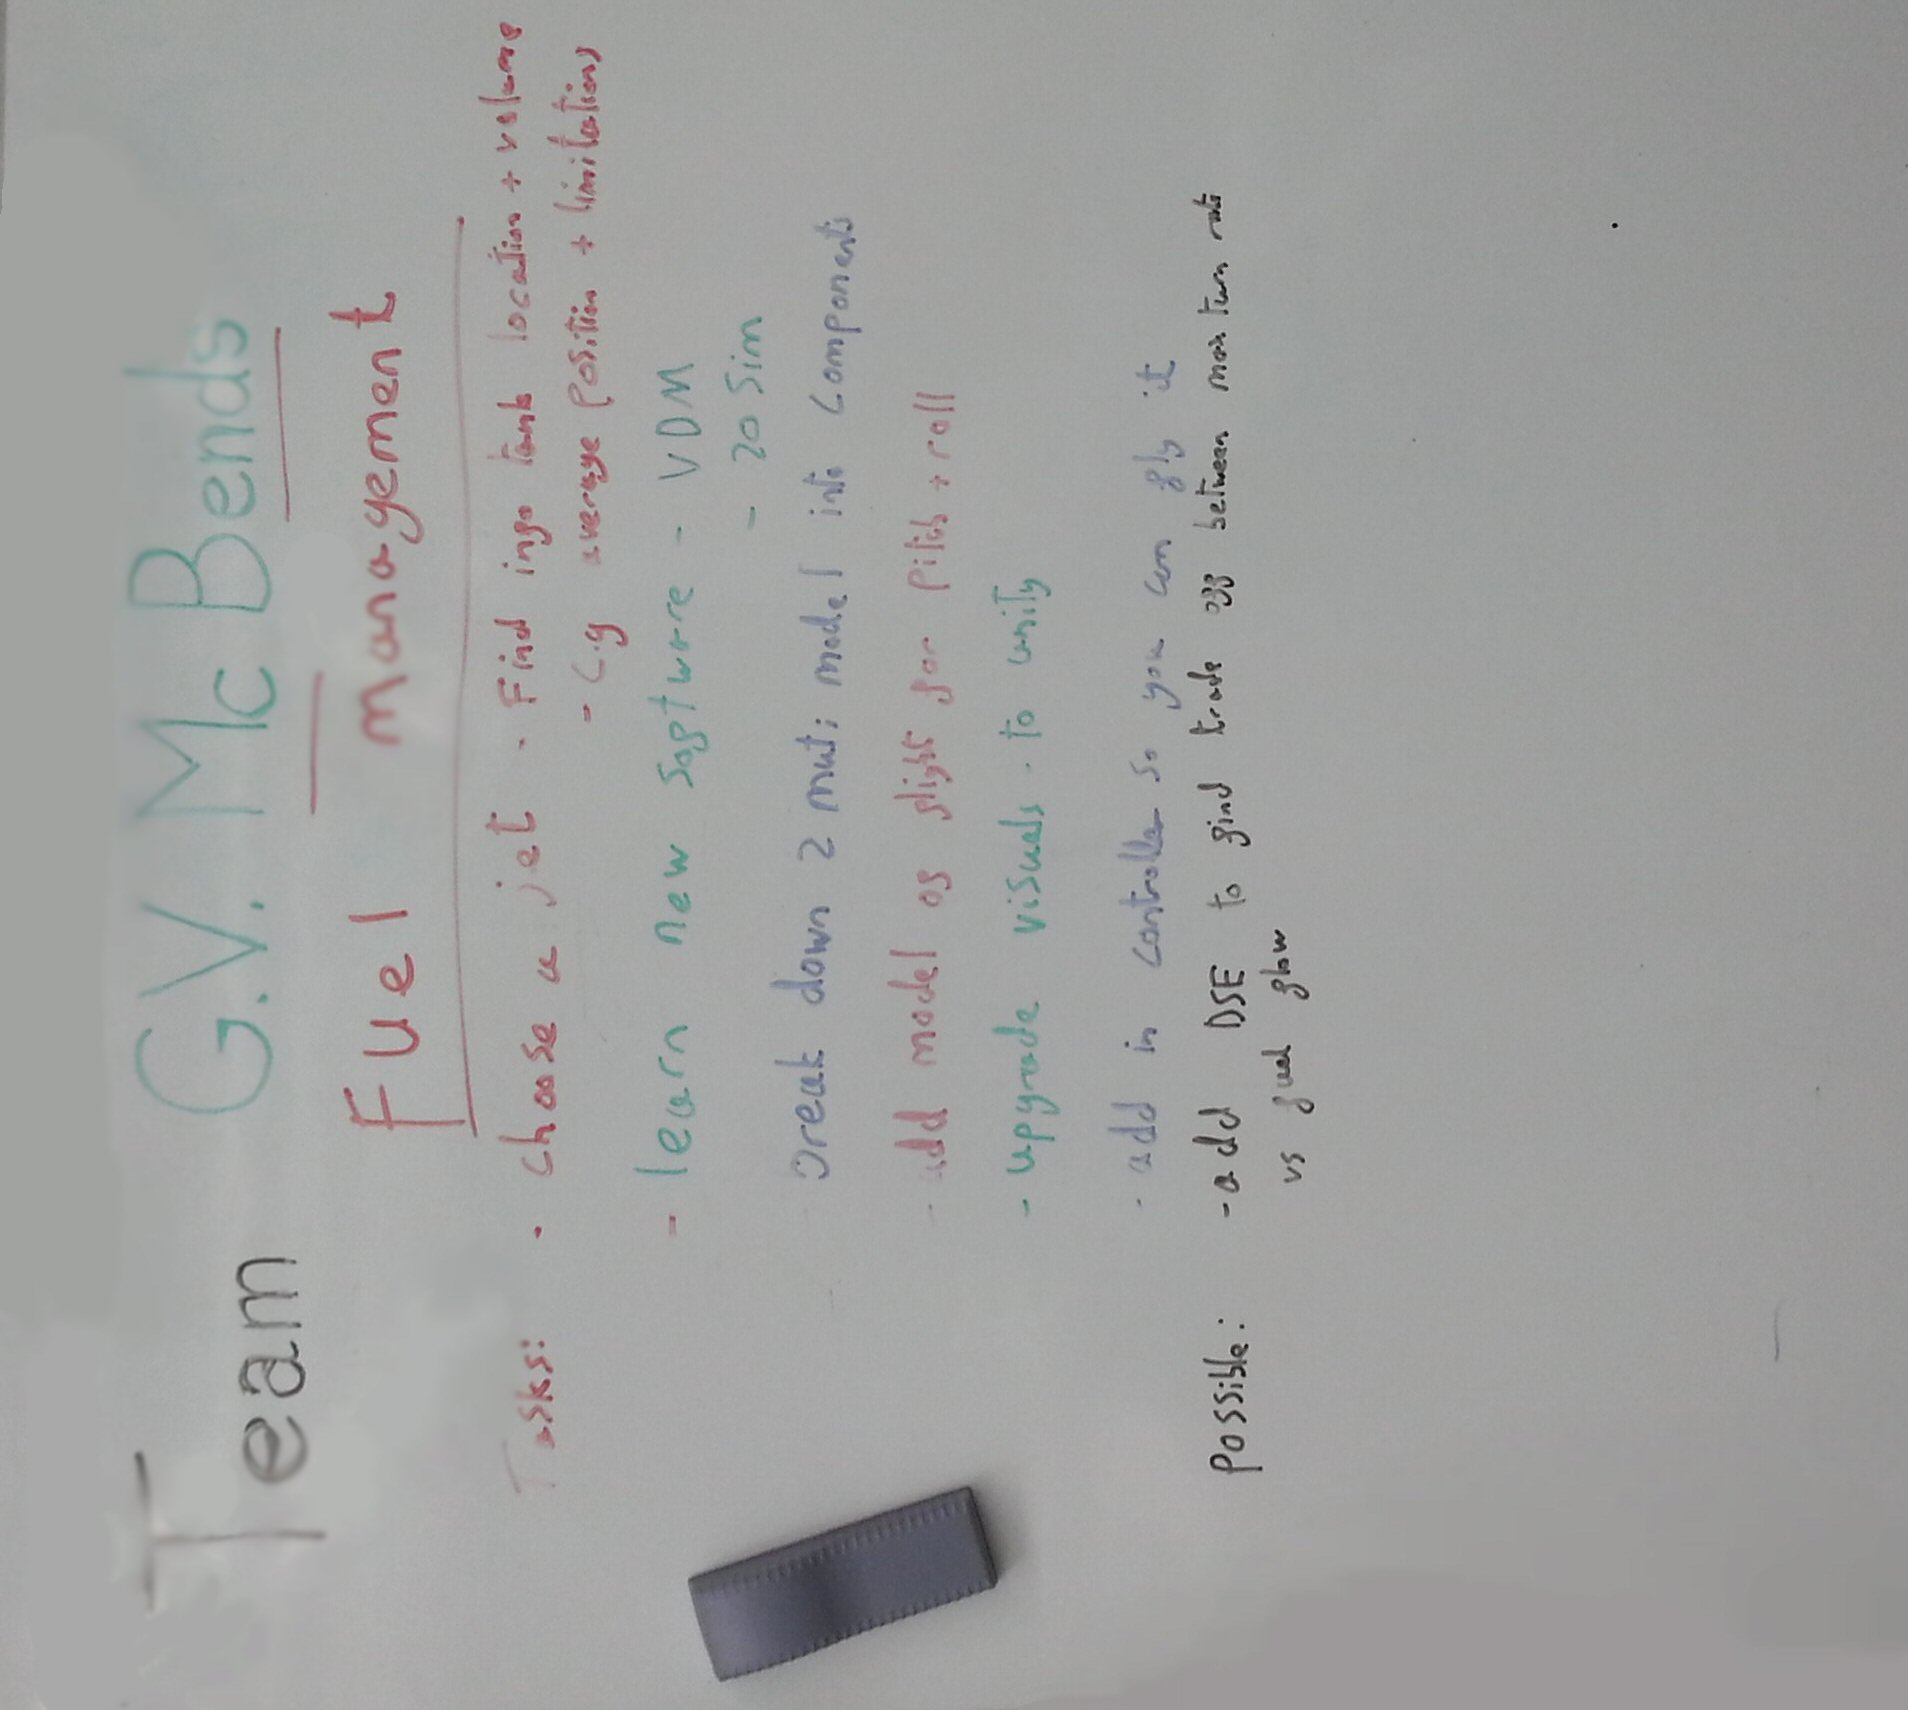 Team G.V. McBends
Fuel management
Tasks: - choose a jet - Find info tank location + volume
- C.g average position + limitations
- learn new software - VDM
- 20 Sim
break down 2 muti model into components
- add model of flight for pitch + roll
- upgrade visuals - to unity
- add in controller so you can fly it
possible: - add DSE to find trade off between max turn rate
vs fuel flow